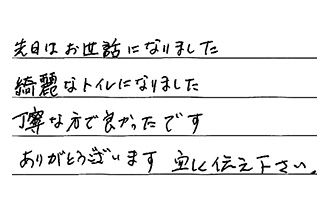 先日はお世話になりました
綺麗なトイレになりました
丁寧な方で良かったです
ありがとうございます 宜しく伝え下さい。